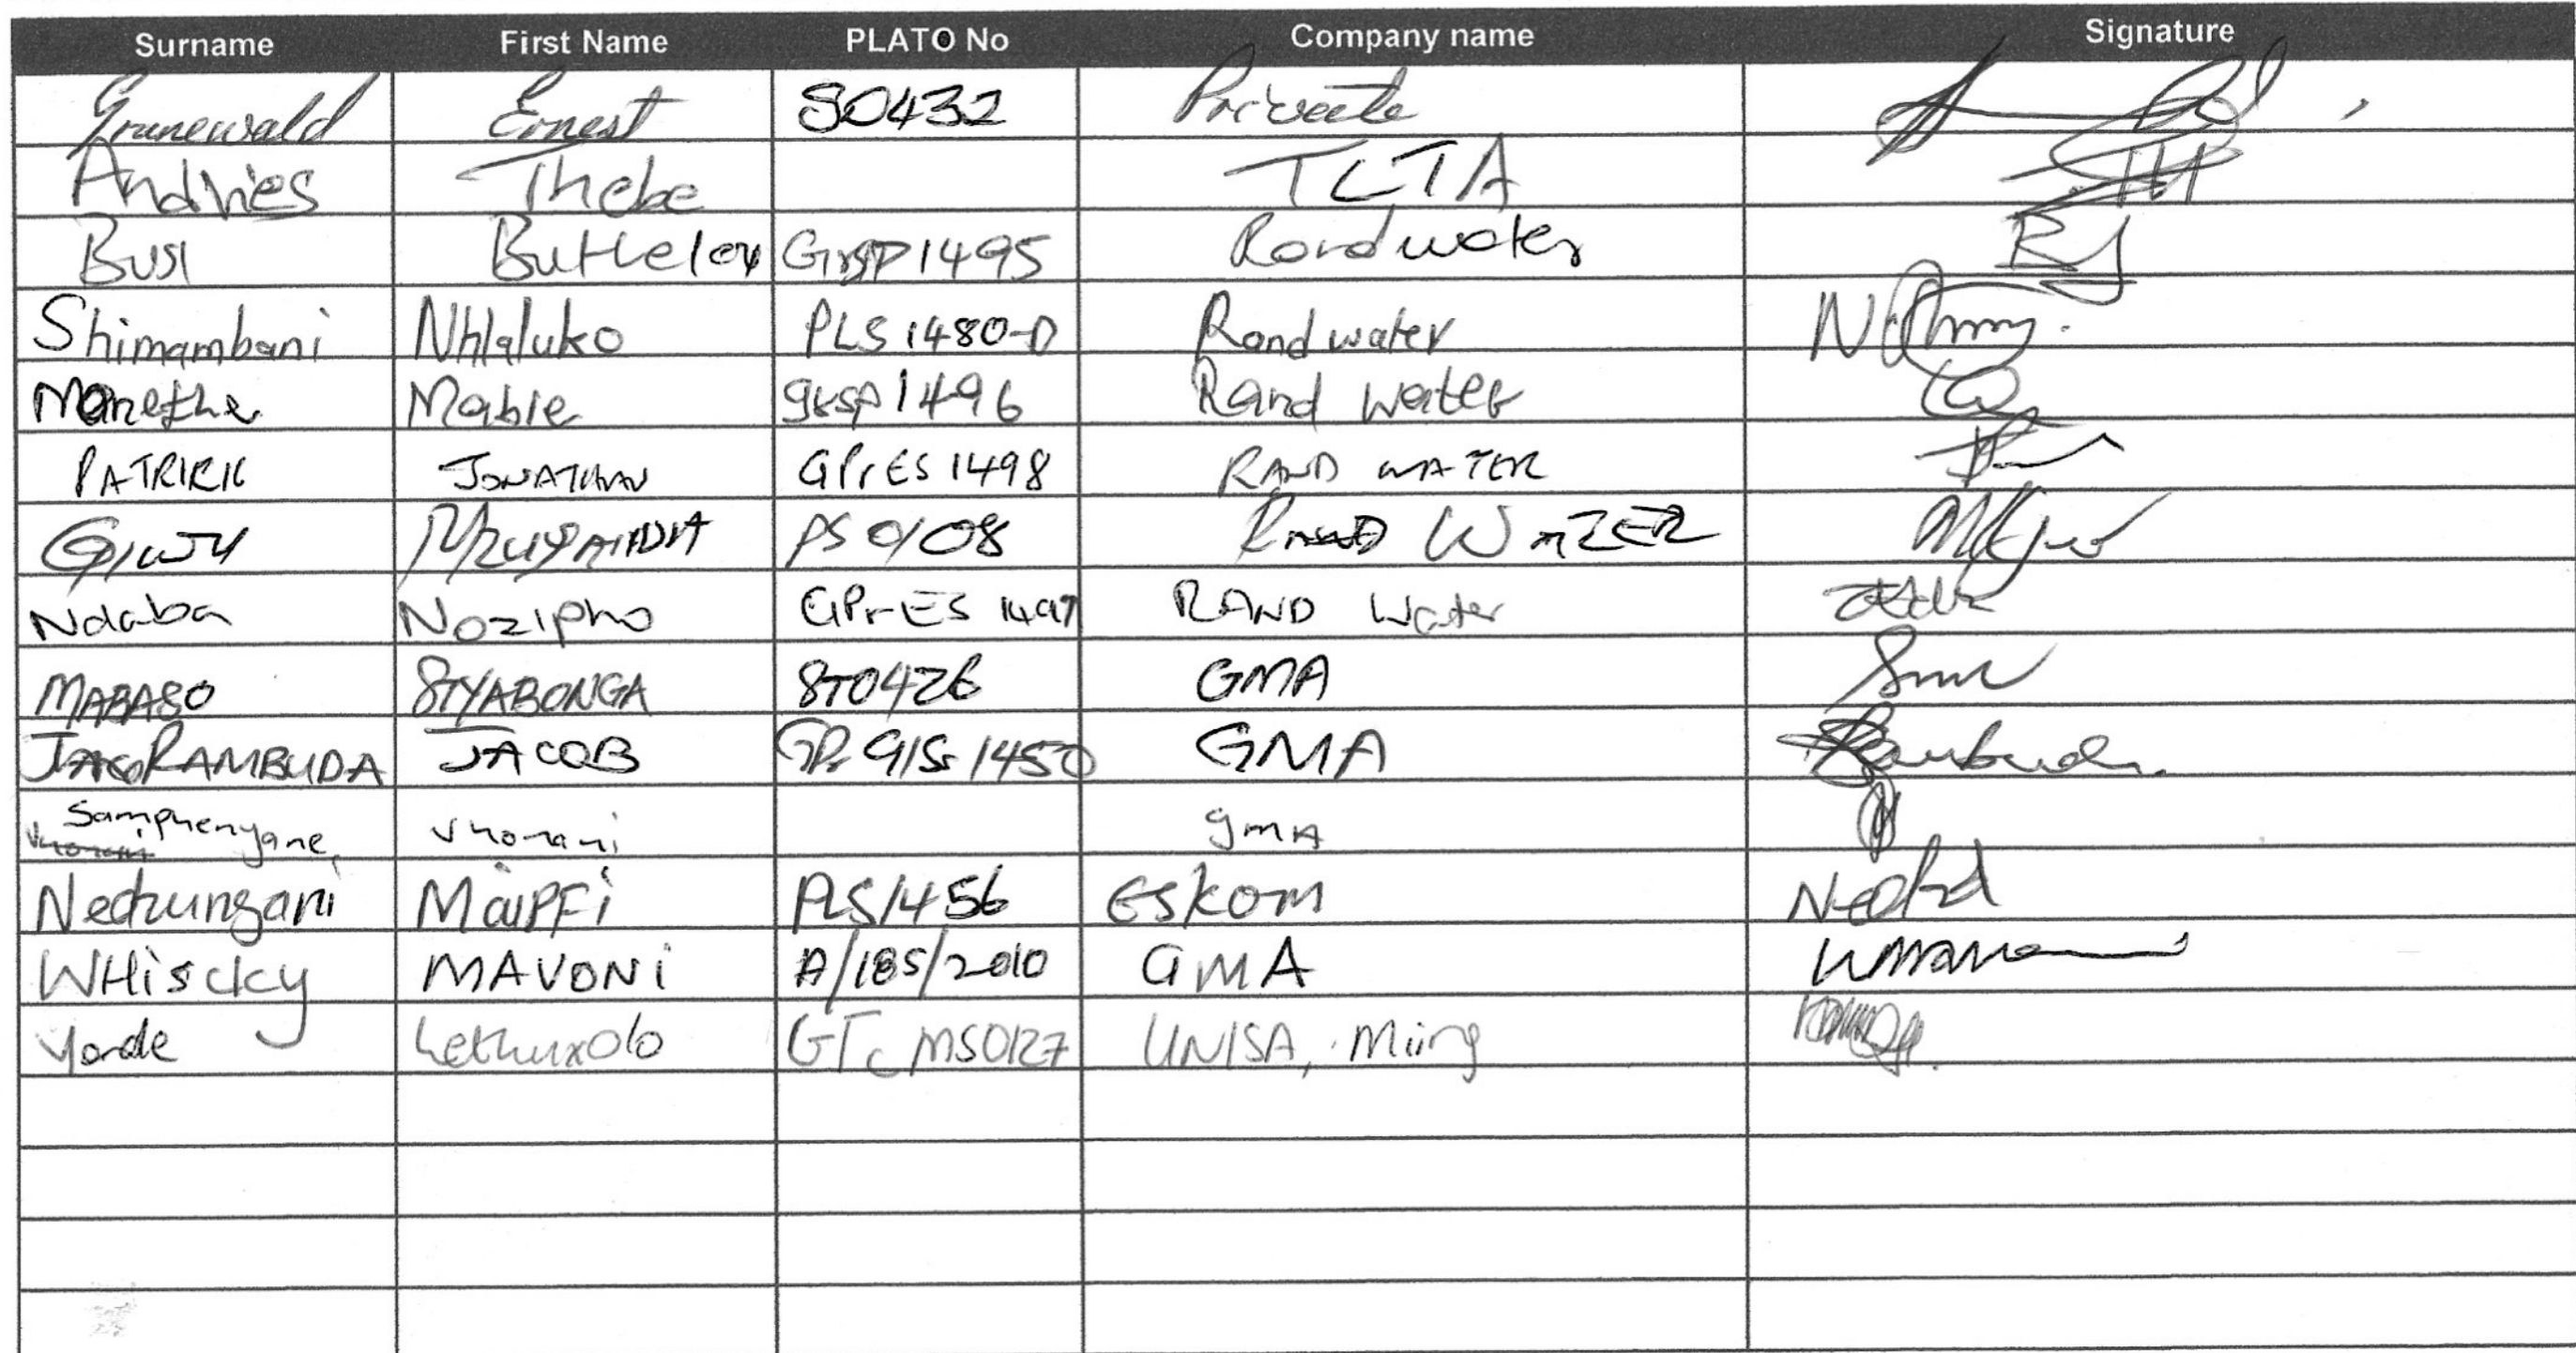 Surname First Name PLATO No Company name Signature
Grunewald Ernest S0432 Private
Andries Thebe TCTA
Busi Buthelezi GPrGISP1495 Randwater
Shimambani Nhlaluko PLS 1480-D Rand water
Manethe Mable grsp 1496 Rand water
PATRICK JONATHAN GPrES 1498 RAND WATER
PS 0108 RAND WATER
Ndaba Nozipho GPr-ES 1497 RAND Water
MABASO SIYABONGA ST0426 GMA
RAMBUDA JACOB GPr GISc 1450 GMA
Samphenyane Vhonani gmA
Nedzungani Maipfi PLS1456 Eskom
WHiscky MAVONi A/185/2010 GMA
Yande GTc MS0127 UNISA,